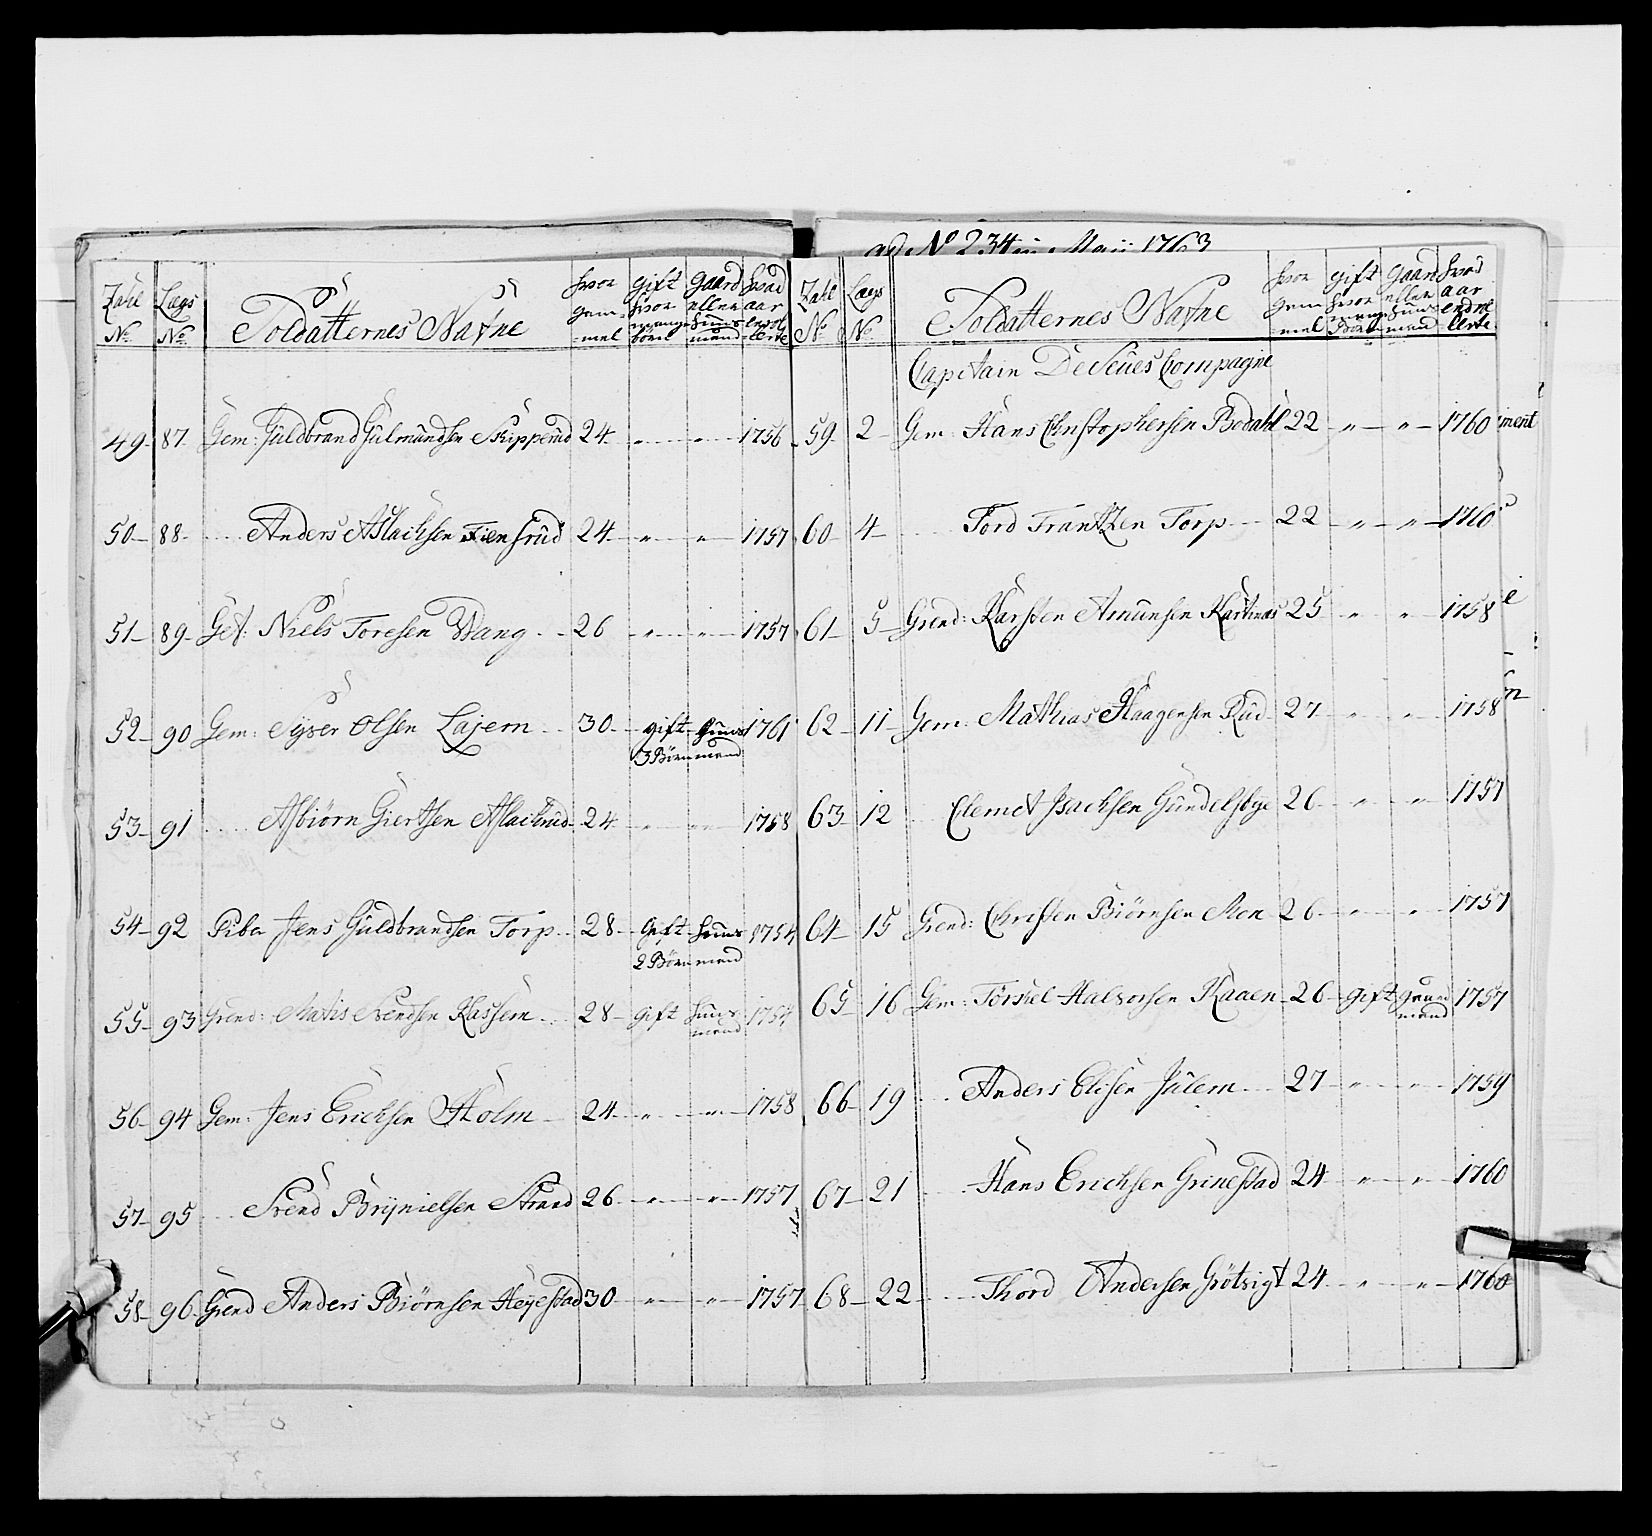 ad No 234 in Maii 1763
Zahl No Lægs No Soldatternes Nafne hvor gam-mel gift hvor mange börn gaard eller huusmand hvad aar enrol-lerte
49 87 Gem: Guldbrand Gulmundsen Skipperud 24 " " 1756
50 88 Anders Aslachsen Fiensrud 24 " " 1757
51 89 Gef: Niels Toresen Wang 26 " " 1757
52 90 Gem: Syver Olsen Lajem 30 gift 3 Börn huusmand 1761
53 91 Asbiörn Giertsen Aslachrud 24 " " 1758
54 92 Piba Jens Guldbrandsen Torp 28 Gift 2 Börn huusmand 1754
55 93 Grend: Matis Svendsen Kassem 28 gift huusmand 1754
56 94 Gem: Jens Erichsen Holm 24 " " 1758
57 95 Svend Brynielsen Strand 26 " " 1757
58 96 Grend Anders Biörnsen Heyestad 30 " " 1757
Zahl No Lægs No Soldatternes Nafne hvor gam-mel gift hvor mange Börn gaard eller huusmand hvad aar enrol-lerte
Capitain De Seues Compagnie
59 2 Gem: Hans Christophersen Bodahl 22 " " 1760
60 4 Tord Frantzen Torp 22 " " 1760
61 5 Grend: Karsten Amunsen 25 " " 1758
62 11 Gem: Mathias Haagensen Rud 27 " " 1758
63 12 Clemet Isachsen Gundelsbye 26 " " 1757
64 15 Grend: Christen Biörnsen Moen 26 " " 1757
65 16 Gem: Torskel Halvorsen Kaaen 26 gift mand 1757
66 19 Anders Elisen Julem 27 " " 1759
67 21 Hans Erichsen Grinestad 24 " " 1760
68 22 Thord Andersen Grötvigt 24 " " 1760